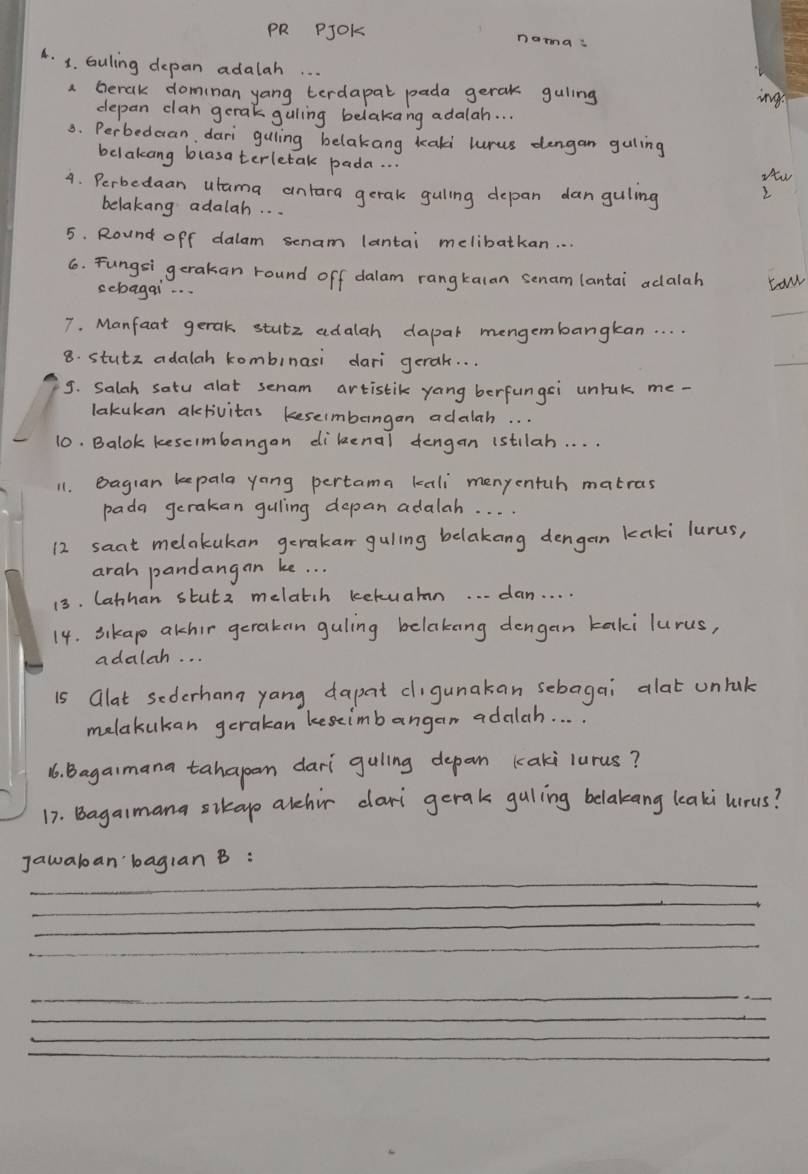 PR PJOK
nama:
A. 1. Guling depan adalah ...
2 Gerak dominan yang terdapat pada gerak guling
depan dan gerak guling belakang adalah...
3. Perbedaan dari guling belakang kaki lurus dengan guling
belakang biasa terletak pada ...
4. Perbedaan utama antara gerak guling depan dan guling
belakang adalah ...
5. Round off dalam senam lantai melibatkan ...
6. Fungsi gerakan round off dalam rangkaian senam lantai adalah
sebagai ...
7. Manfaat gerak stutz adalah dapat mengembangkan ....
8. stutz adalah kombinasi dari gerak...
9. Salah satu alat senam artistik yang berfungsi untuk me-
lakukan aktivitas keseimbangan adalah ...
10. Balok keseimbangan dikenal dengan istilah ....
11. Bagian kepala yang pertama kali menyentuh matras
pada gerakan guling depan adalah ....
12 saat melakukan gerakan guling belakang dengan kaki lurus,
arah pandangan ke ...
13. Latihan stutz melatih kekuatan ... dan ....
14. sikap akhir gerakan guling belakang dengan kaki lurus,
adalah ...
15 alat sederhana yang dapat digunakan sebagai alat untuk
melakukan gerakan keseimbangan adalah....
16. Bagaimana tahapan dari guling depan kaki lurus?
17. Bagaimana sikap akhir dari gerak guling belakang kaki lurus?
Jawaban bagian B :